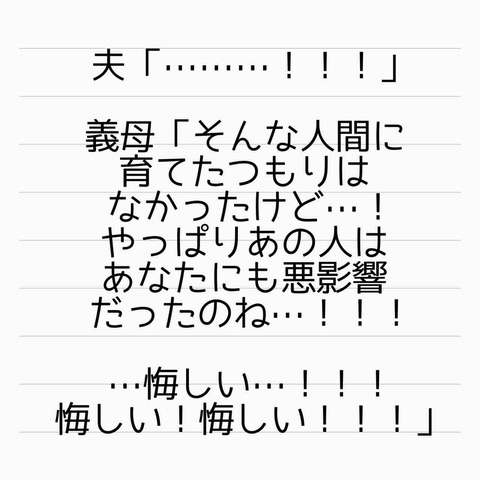 夫「………！！！」
義母「そんな人間に
育てたつもりは
なかったけど…！
やっぱりあの人は
あなたにも悪影響
だったのね…！！！
…悔しい…！！！
悔しい！悔しい！！！」